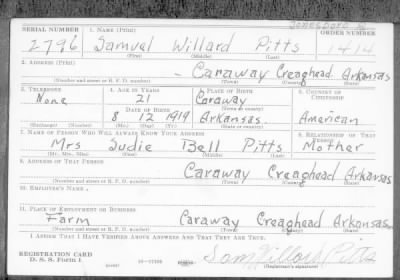 Jonesboro
SERIAL NUMBER 1. NAME (Print) ORDER NUMBER
2796 Samuel Willard Pitts 1414
(First) (Middle) (Last)
2. ADDRESS (Print)
- Caraway Creaghead Arkansas
(Number and street or R. F. D. number) (Town) (County) (State)
3. TELEPHONE 4. AGE IN YEARS 5. PLACE OF BIRTH 6. COUNTRY OF CITIZENSHIP
None 21 Caraway
DATE OF BIRTH (Town or county)
8 12 1919 Arkansas. American
(Exchange) (Number) (Mo.) (Day) (Yr.) (State or country)
7. NAME OF PERSON WHO WILL ALWAYS KNOW YOUR ADDRESS 8. RELATIONSHIP OF THAT PERSON
Mrs Sudie Bell Pitts Mother
(Mr., Mrs., Miss) (First) (Middle) (Last)
9. ADDRESS OF THAT PERSON
Caraway Creaghead Arkansas
(Number and street or R. F. D. number) (Town) (County) (State)
10. EMPLOYER'S NAME
11. PLACE OF EMPLOYMENT OR BUSINESS
Farm Caraway Creaghead Arkansas
(Number and street or R. F. D. number) (Town) (County) (State)
I AFFIRM THAT I HAVE VERIFIED ABOVE ANSWERS AND THAT THEY ARE TRUE.
REGISTRATION CARD
D. S. S. Form 1
Sam Willard Pitts
(Registrant's signature)